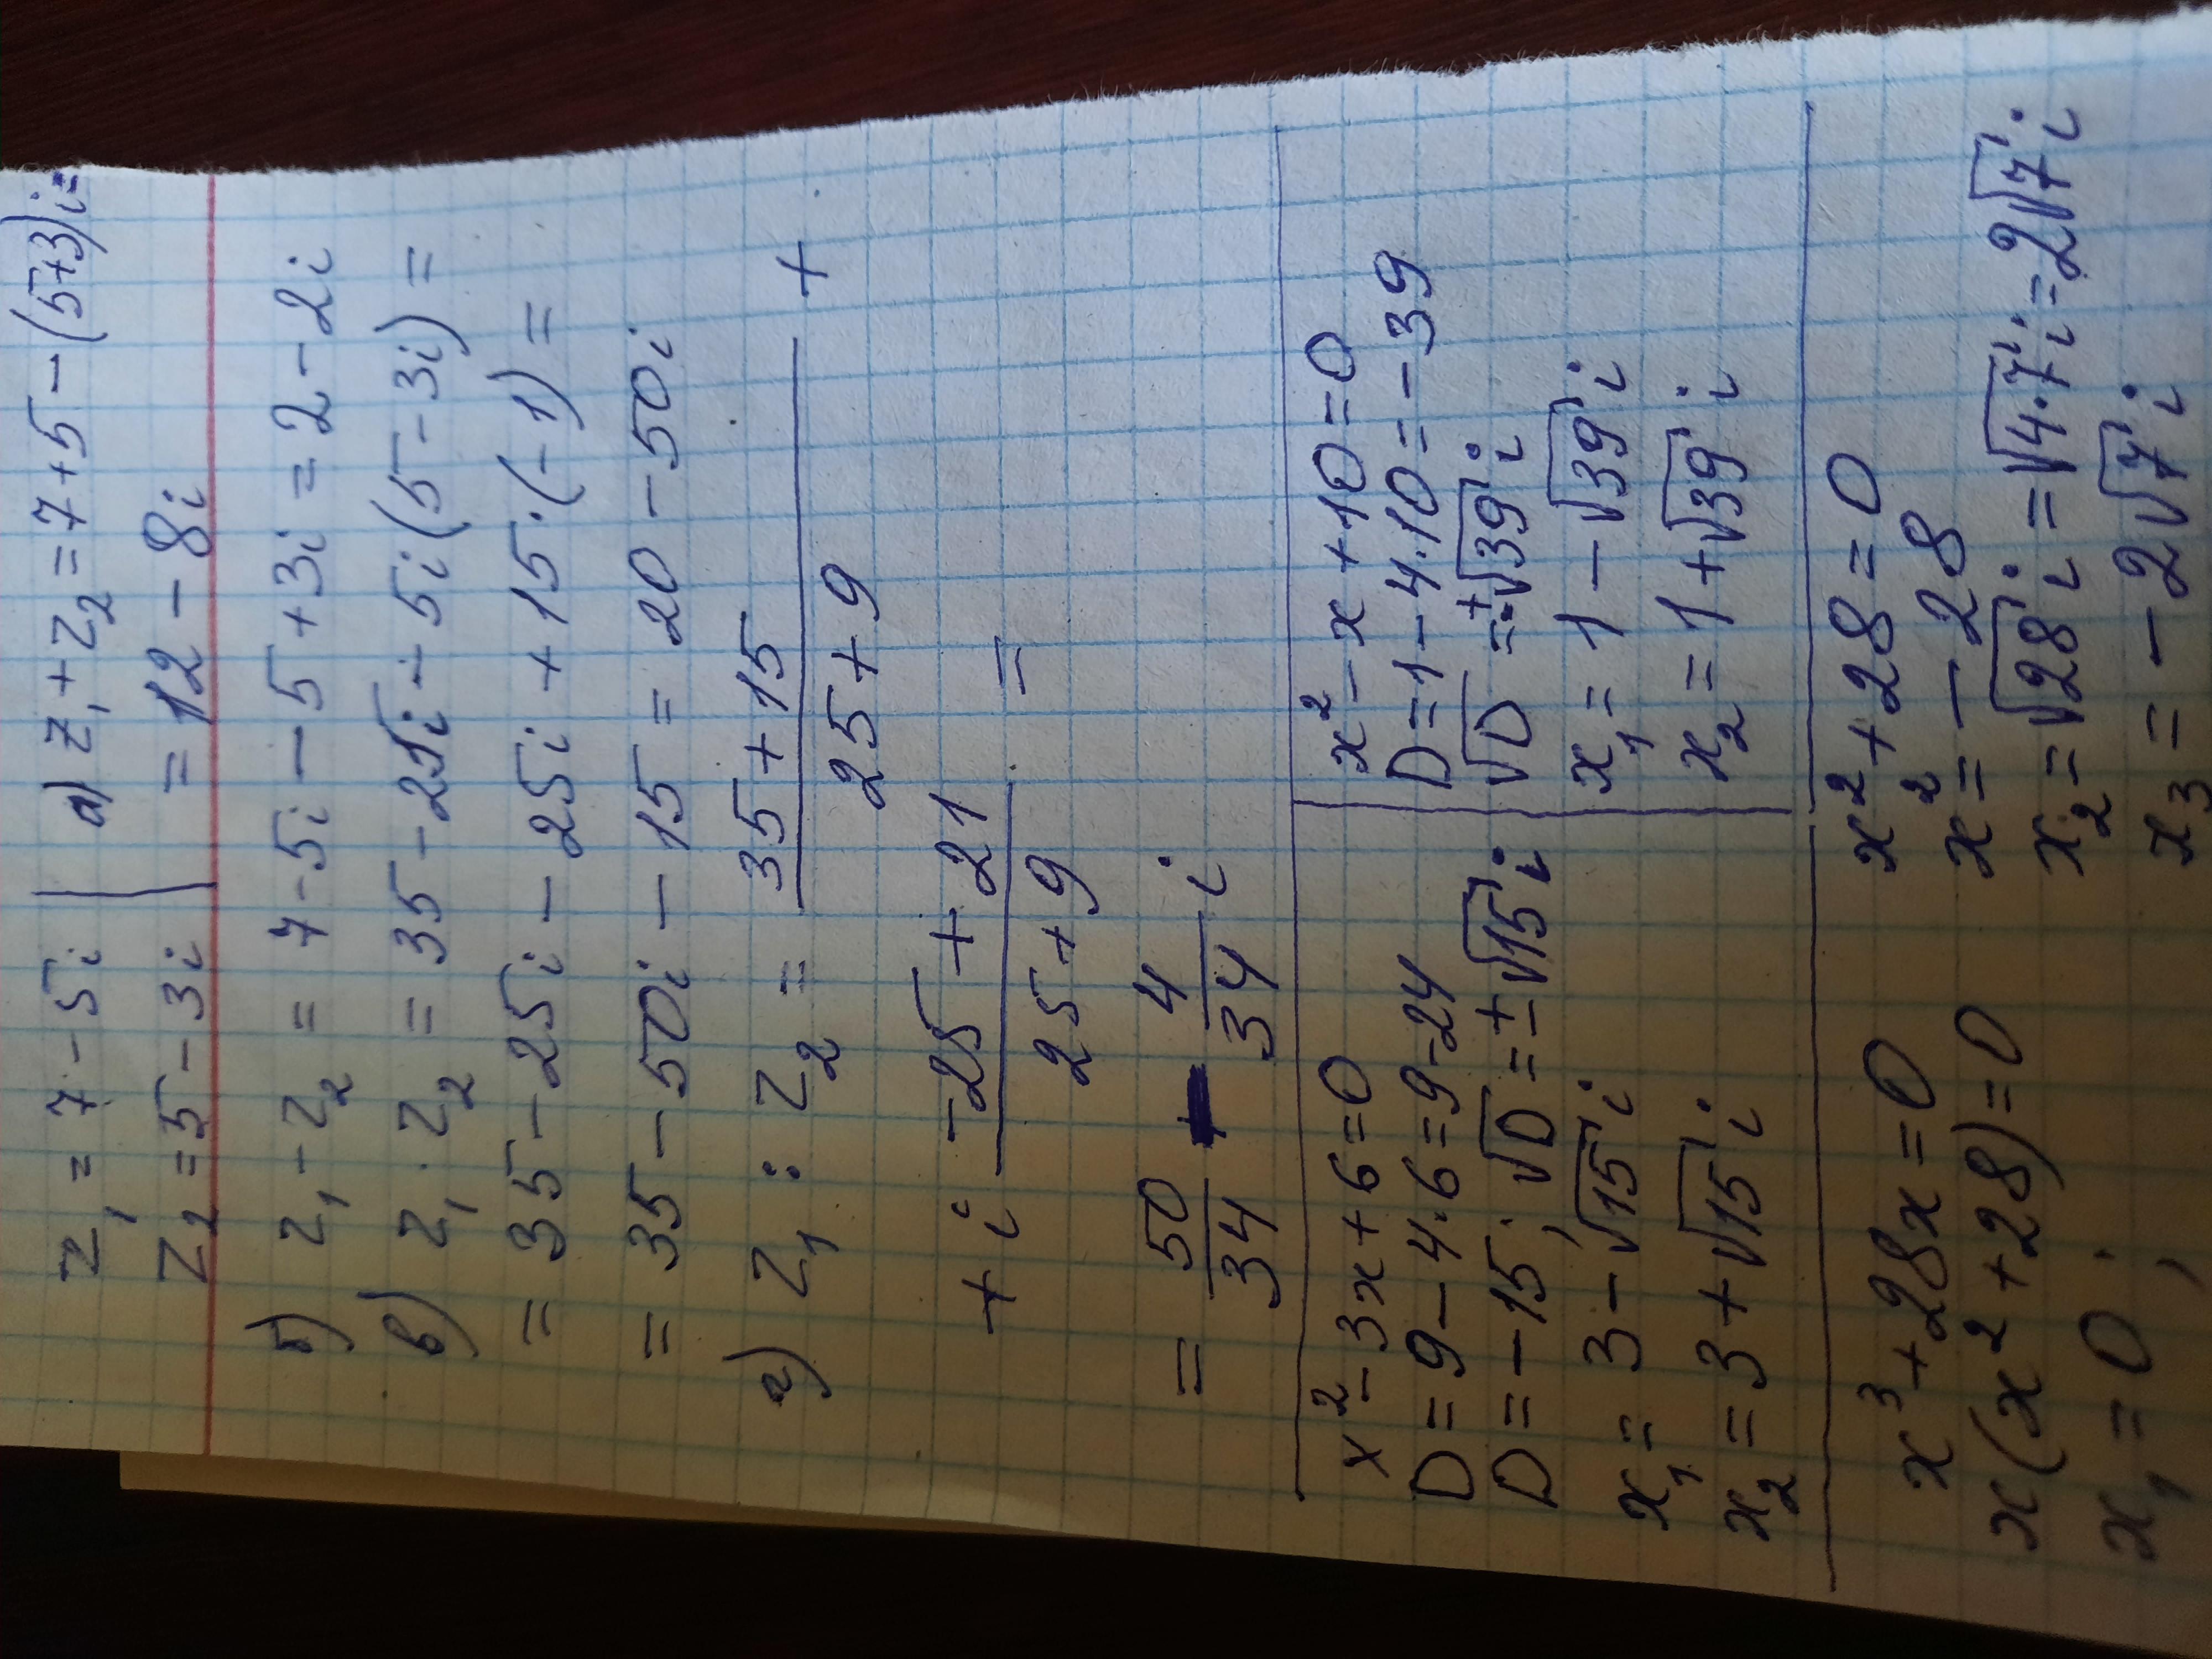 z₁ = 7 - 5i
z₂ = 5 - 3i
а) z₁ + z₂ = 7 + 5 - (5+3)i =
= 12 - 8i
б) z₁ - z₂ = 7 - 5i - 5 + 3i = 2 - 2i
в) z₁ · z₂ = 35 - 21i - 5i(5 - 3i) =
= 35 - 25i - 25i + 15·(-1) =
= 35 - 50i - 15 = 20 - 50i
г) z₁ : z₂ = (35 + 15)/(25 + 9) +
+ i (-25 + 21)/(25 + 9) =
= 50/34 - 4/34 i
x² - 3x + 6 = 0
D = 9 - 4·6 = 9 - 24
D = -15; √D = ±√15 i
x₁ = 3 - √15 i
x₂ = 3 + √15 i
x² - x + 10 = 0
D = 1 - 4·10 = -39
√D = ±√39 i
x₁ = 1 - √39 i
x₂ = 1 + √39 i
x³ + 28x = 0
x(x² + 28) = 0
x₁ = 0;
x² + 28 = 0
x² = -28
x₂ = √28 i = √4·7 i = 2√7 i
x₃ = -2√7 i